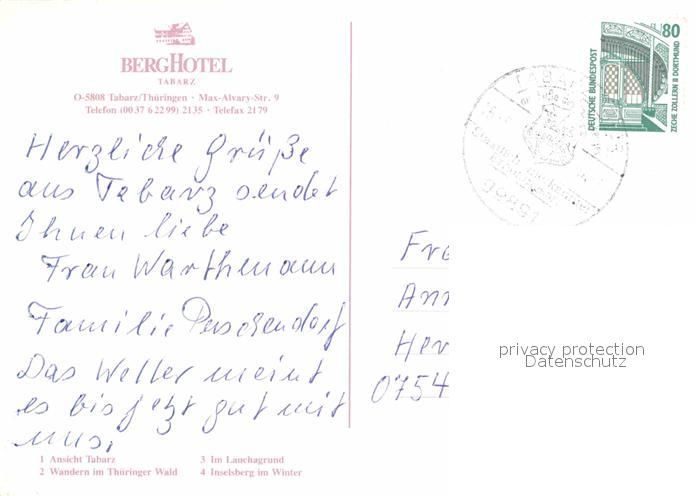 BERGHOTEL
TABARZ
O-5808 Tabarz/Thüringen · Max-Alvary-Str. 9
Telefon (00 37 6 22 99) 21 35 · Telefax 21 79
Herzliche Grüße
aus Tabarz sendet
Ihnen liebe
Frau Warthemann
Familie Puschendorf
Das Wetter meint
es bis jetzt gut mit
uns.
1 Ansicht Tabarz
2 Wandern im Thüringer Wald
3 Im Lauchagrund
4 Inselsberg im Winter
80
DEUTSCHE BUNDESPOST
ZECHE ZOLLERN II DORTMUND
Fra
Ann
Her
0754
privacy protection
Datenschutz